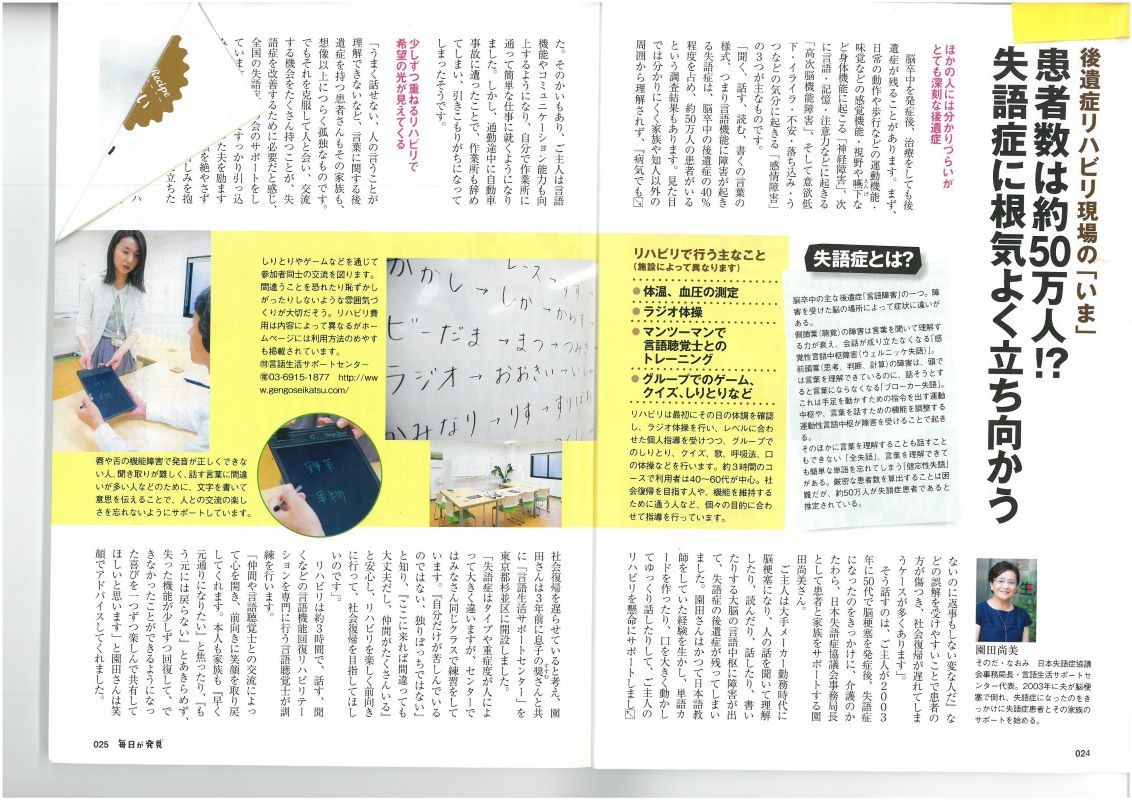 後遺症リハビリ現場の「いま」
患者数は約50万人!?
失語症に根気よく立ち向かう
ほかの人には分かりづらいが
とても深刻な後遺症
脳卒中を発症後、治療をしても後
遺症が残ることがあります。まず、
日常の動作や歩行などの運動機能・
味覚などの感覚機能・視野や嚥下な
ど身体機能に起こる「神経障害」、次
に言語・記憶・注意力などに起きる
「高次脳機能障害」、そして意欲低
下・イライラ・不安・落ち込み・う
つなどの気分に起きる「感情障害」
の3つが主なものです。
「聞く、話す、読む、書くの言葉の
様式、つまり言語機能に障害が起き
る失語症は、脳卒中の後遺症の40％
程度を占め、約50万人の患者がいる
という調査結果もあります。見た目
では分かりにくく家族や知人以外の
周囲から理解されず、『病気でも
ないのに返事もしない変な人だ』な
どの誤解を受けやすいことで患者の
方が傷つき、社会復帰が遅れてしま
うケースが多くあります」。
そう話すのは、ご主人が2003
年に50代で脳梗塞を発症後、失語症
になったのをきっかけに、介護のか
たわら、日本失語症協議会事務局長
として患者と家族をサポートする園
田尚美さん。
ご主人は大手メーカー勤務時代に
脳梗塞になり、人の話を聞いて理解
したり、読んだり、話したり、書い
たりする大脳の言語中枢に障害が出
て、失語症の後遺症が残ってしまい
ました。園田さんはかつて日本語教
師をしていた経験を生かし、単語カ
ードを作ったり、口を大きく動かし
てゆっくり話したりして、ご主人の
リハビリを懸命にサポートしまし
園田尚美
そのだ・なおみ 日本失語症協議
会事務局長・言語生活サポートセ
ンター代表。2003年に夫が脳梗
塞で倒れ、失語症になったのをき
っかけに失語症患者とその家族の
サポートを始める。
失語症とは?
脳卒中の主な後遺症「言語障害」の一つ。障
害を受けた脳の場所によって症状に違いが
ある。
側頭葉(聴覚)の障害は言葉を聞いて理解す
る力が衰え、会話が成り立たなくなる「感
覚性言語中枢障害(ウェルニッケ失語)」。
前頭葉(思考、判断、計算)の障害は、頭で
は言葉を理解できているのに、話そうとす
ると言葉にならなくなる「ブローカー失語」。
これは手足を動かすための指令を出す運動
中枢や、言葉を話すための機能を調整する
運動性言語中枢が障害を受けることで起き
る。
そのほかに言葉を理解することも話すこと
もできない「全失語」、言葉を理解できて
も簡単な単語を忘れてしまう「健忘性失語」
がある。厳密な患者数を算出することは困
難だが、約50万人が失語症患者であると
推定されている。
リハビリで行う主なこと
(施設によって異なります)
●体温、血圧の測定
●ラジオ体操
●マンツーマンで
言語聴覚士との
トレーニング
●グループでのゲーム、
クイズ、しりとりなど
リハビリは最初にその日の体調を確認
し、ラジオ体操を行い、レベルに合わ
せた個人指導を受けつつ、グループで
のしりとり、クイズ、歌、呼吸法、口
の体操などを行います。約3時間のコ
ースで利用者は40〜60代が中心。社
会復帰を目指す人や、機能を維持する
ために通う人など、個々の目的に合わ
せて指導を行っています。
024
た。そのかいもあり、ご主人は言語
機能やコミュニケーション能力も向
上するようになり、自分で作業所に
通って簡単な仕事に就くようになり
ました。しかし、通勤途中に自動車
事故に遭ったことで、作業所も辞め
てしまい、引きこもりがちになって
しまったそうです。
少しずつ重ねるリハビリで
希望の光が見えてくる
「うまく話せない、人の言うことが
理解できないなど、言葉に関する後
遺症を持つ患者さんもその家族も、
想像以上につらく孤独なものです。
でもそれを克服して人と会い、交流
する機会をたくさん持つことが、失
語症を改善するために必要だと感じ、
全国の失語症
会のサポートをし
ていま
すっかり引っ込
た夫を励ます
を絶やさず
しみを抱
立ちた
ハ
Recipe
しりとりやゲームなどを通じて
参加者同士の交流を図ります。
間違うことを恐れたり恥ずかし
がったりしないような雰囲気づ
くりが大切だそう。リハビリ費
用は内容によって異なるがホー
ムページには利用方法のめやす
も掲載されています。
㉄言語生活サポートセンター
☎03-6915-1877 http://ww
w.gengoseikatsu.com/
レース→りす
かかし→しか→からす
ビーだま→まつ→つみき
ラジオ→おおきい→いし
かみなり→りす→すりばち
野菜
果物
唇や舌の機能障害で発音が正しくできな
い人、聞き取りが難しく、話す言葉に間違
いが多い人などのために、文字を書いて
意思を伝えることで、人との交流の楽し
さを忘れないようにサポートしています。
社会復帰を遅らせていると考え、園
田さんは3年前に息子の奨さんと共
に「言語生活サポートセンター」を
東京都杉並区に開設しました。
「失語症はタイプや重症度が人によ
って大きく違いますが、センターで
はみなさん同じクラスで練習をして
います。『自分だけが苦しんでいる
のではない、独りぼっちではない』
と知り、『ここに来れば間違っても
大丈夫だし、仲間がたくさんいる』
と安心し、リハビリを楽しく前向き
に行って、社会復帰を目指してほし
いのです」。
リハビリは約3時間で、話す、聞
くなどの言語機能回復リハビリテー
ションを専門に行う言語聴覚士が訓
練を行います。
「仲間や言語聴覚士との交流によっ
て心を開き、前向きに笑顔を取り戻
してくれます。本人も家族も『早く
元通りになりたい』と焦ったり、『も
う元には戻らない』とあきらめず、
失った機能が少しずつ回復して、で
きなかったことができるようになっ
た喜びを一つずつ楽しんで共有して
ほしいと思います」と園田さんは笑
顔でアドバイスしてくれました。
025 毎日が発見